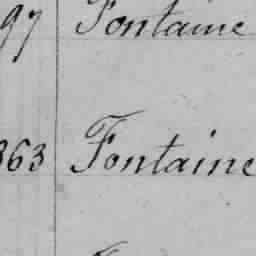 97 Fontaine
363 Fontaine